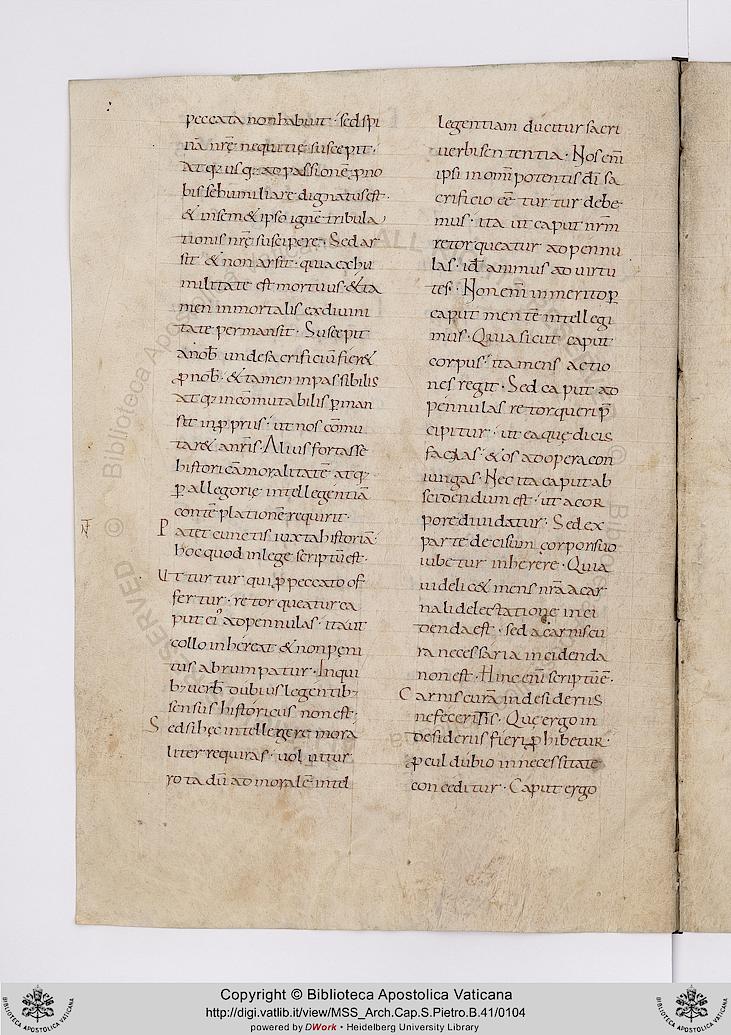 peccata non habuit · sed spi
nā nrē nequitię suscepit ·
Atq; is q; ad passionē ꝓ no
bis se humiliare dignatus est ·
& in sem& ipso ignē tribula
tionis nrę suscipere · Sed ar
sit & non arsit · quia ex hu
militate est mortuus · & ta
men inmortalis ex divini
tate permansit · Suscepit
a nob̄ unde sacrificiū fier&
ꝓ nob̄ · & tamen inpassibilis
atq; incōmutabilis ꝑman
sit in ꝓpriis · ut nos cōmu
tar& a nr̄is · Alius fortasse
historicā moralitatē atq;
ꝑ allegorię intellegentiā
contēplationē requirit ·
Patet cunctis iuxta historiā
hoc quod in lege scriptū est ·
Ut turtur qui ꝓ peccato of
fertur · retorqueatur ca
put ei' ad pennulas · ita ut
collo inhereat & non pęni
tus abrumpatur · Inqui
b; verb̄ dubius legentib;
sensus historicus non est ·
Sed si hęc intellegere mora
liter requiras · volvitur
rota dū ad moralē intel
legentiam ducitur sacri
verbi sententia · Nos em̄
ipsi in omīpotentis dī sa
crificio eē turtur debe
mus · ita ut caput nr̄m
retorqueatur ad pennu
las · id ÷ animus ad virtu
tes · Non em̄ inmerito ꝑ
caput mentē intellegi
mus · Quia sicut caput
corpus · ita mens actio
nes regit · Sed caput ad
pennulas retorqueri p̄
cipitur · ut ea quę dicis
facias · & os ad opera con
iungas · Nec ita caput ab
scidendum est · ut a cor
pore dividatur · Sed ex
parte decisum corpori suo
iubetur inherere · Quia
videlic& mens nrā a car
nali delectatione inci
denda est · sed a carnis cu
ra necessaria incidenda
non est · Hinc em̄ scriptū ÷ ·
Carnis curā in desideriis
ne feceritis · Quę ergo in
desideriis fieri ꝓhibetur ·
ꝓcul dubio in necessitate
conceditur · Caput ergo
Copyright © Biblioteca Apostolica Vaticana
http://digi.vatlib.it/view/MSS_Arch.Cap.S.Pietro.B.41/0104
powered by DWork • Heidelberg University Library